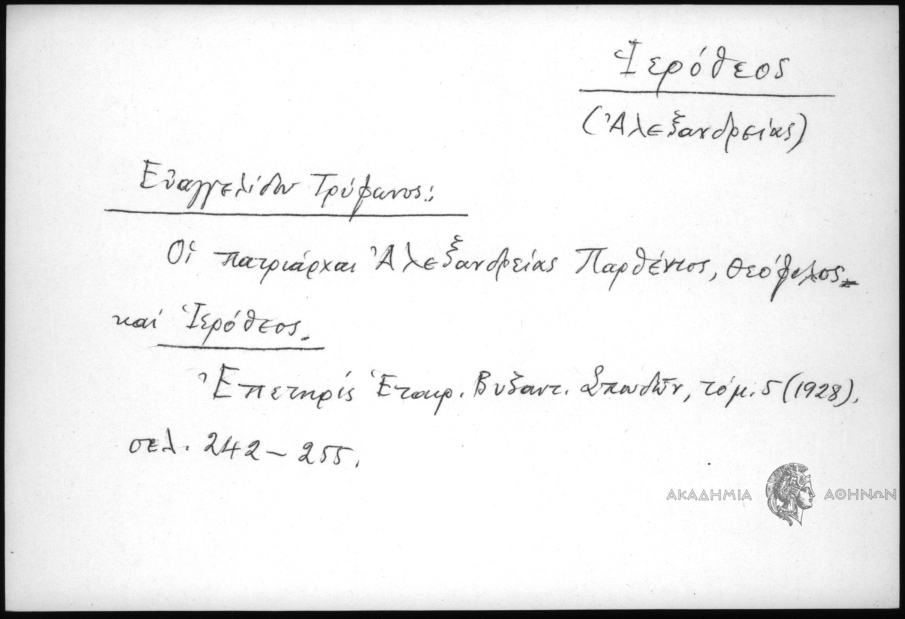 Ἱερόθεος
(Ἀλεξανδρείας)
Εὐαγγελίδου Τρύφωνος:
Οἱ πατριάρχαι Ἀλεξανδρείας Παρθένιος, Θεόφιλος
καὶ Ἱερόθεος.
Ἐπετηρὶς Ἑταιρ. Βυζαντ. Σπουδῶν, τόμ. 5 (1928),
σελ. 242 – 255.
ΑΚΑΔΗΜΙΑ ΑΘΗΝΩΝ